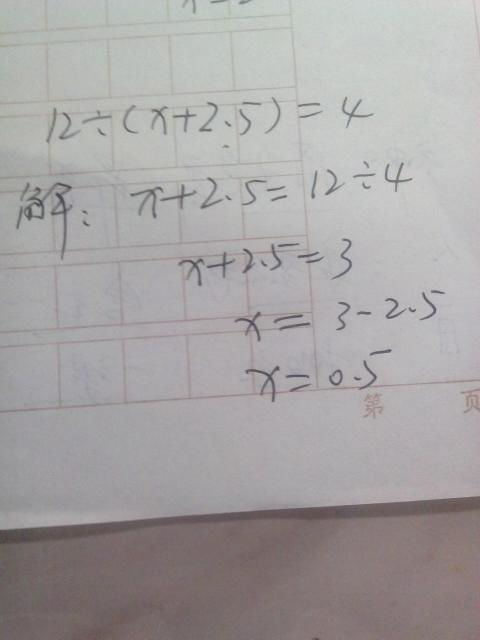 12÷(x+2.5)=4
解: x+2.5=12÷4
x+2.5=3
x=3-2.5
x=0.5
第 页